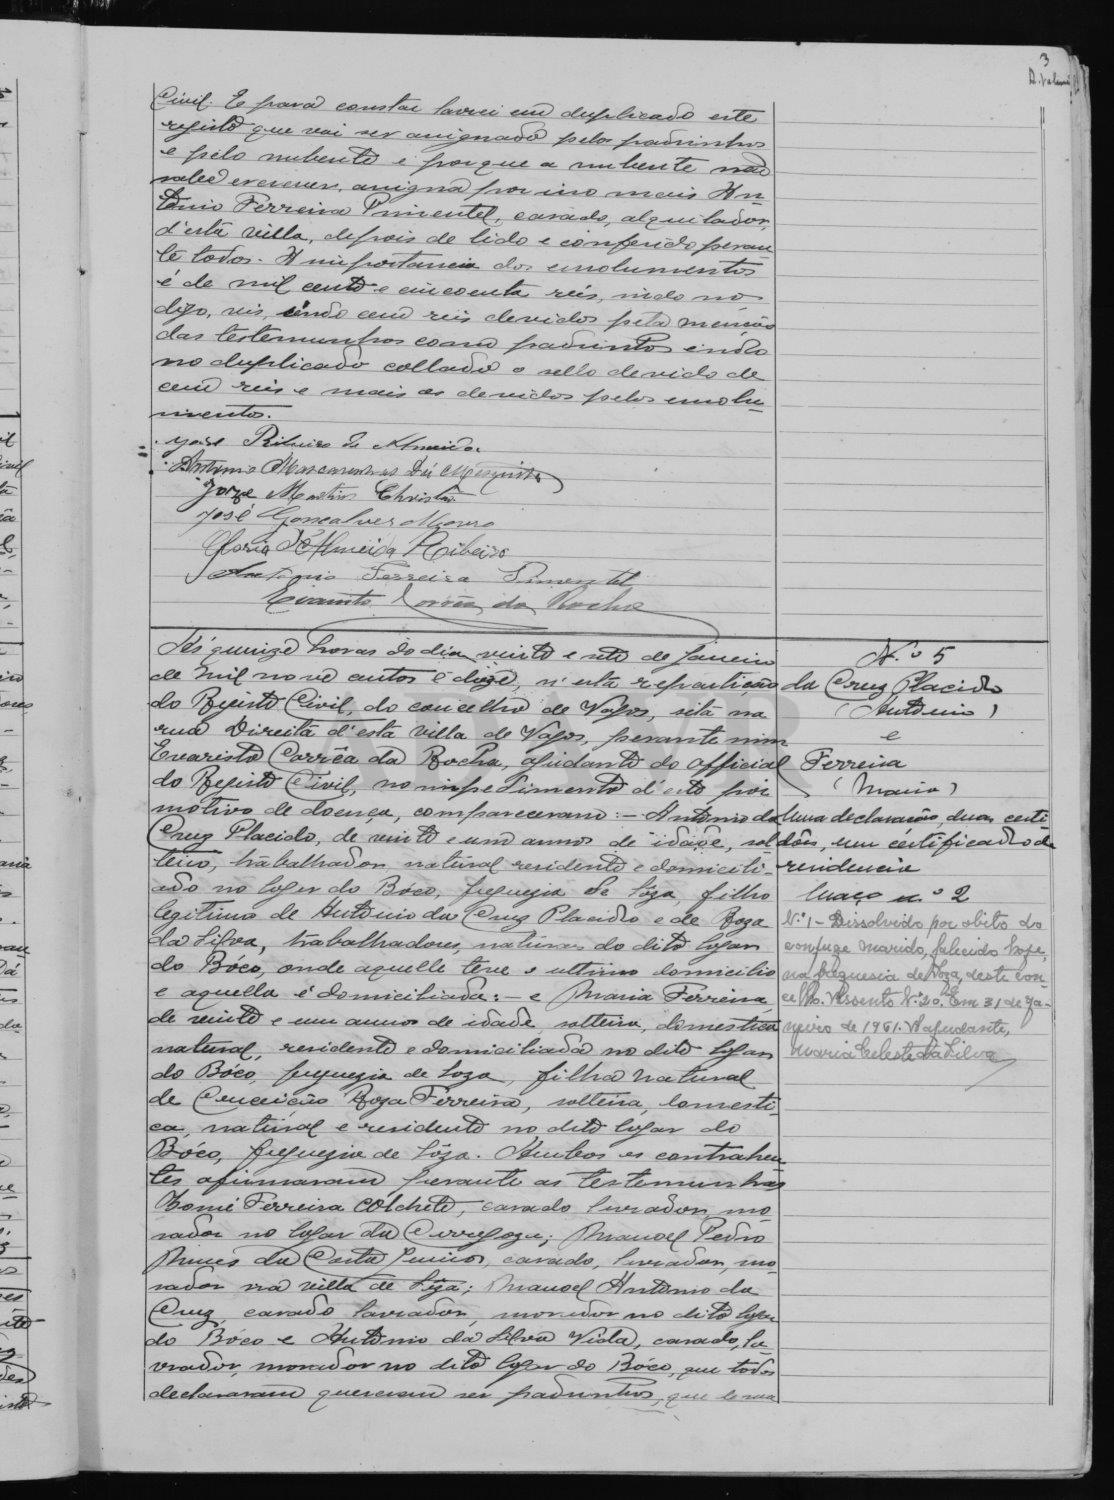 3
Civil. E para constar lavrei em duplicado este
registo que vai ser assignado pelos padrinhos
e pelo nubente e porque a nubente não
sabe escrever, assigna por isso mais An-
tonio Ferreira Pimentel, casado, alquilador,
d'esta villa, depois de lido e conferido peran-
te todos. A importancia dos emolumentos
é de mil cento e cincoenta réis, sendo no
digo, reis, sendo cem reis devidos pela menção
das testemunhas como padrinhos e indo
no duplicado collado o sello devido de
cem reis e mais os devidos pelos emolu-
mentos.
José Ribeiro de Almeida
Antonio Mascarenhas de Mesquita
Jorge Martins Christo
José Gonçalves Mouro
Gloria d'Almeida Ribeiro
Antonio Ferreira Pimentel
Evaristo Corrêa da Rocha
Ás quinze horas do dia vinte e sete de Janeiro
de mil nove centos e doze, n'esta repartição
do Registo Civil, do concelho de Vagos, sita na
rua Direita d'esta villa de Vagos, perante mim
Evaristo Corrêa da Rocha, ajudante do official
do Registo Civil, no impedimento d'este por
motivo de doença, compareceram: – Antonio da
Cruz Placido, de vinte e um annos de idade, sol-
teiro, trabalhador, natural residente e domicili-
ado no logar do Bóco, freguezia de Sôza, filho
legitimo de Antonio da Cruz Placido e de Roza
da Silva, trabalhadores, naturaes do dito logar
do Bóco, onde aquelle teve o ultimo domicilio
e aquella é domiciliada: – e Maria Ferreira,
de vinte e um annos de idade, solteira, domestica
natural, residente e domiciliada no dito logar
do Bóco, freguezia de Soza, filha natural
de Conceição Roza Ferreira, solteira, domesti-
ca, natural e residente no dito logar do
Bóco, freguezia de Sôza. Ambos os contrahen-
tes afirmaram perante as testemunhas
Thomé Ferreira Colchete, casado lavrador, mo-
rador no logar da; Manoel Pedro
Nunes da Costa Junior, casado, lavrador, mo-
rador na villa de Sôza; Manoel Antonio da
Cruz, casado lavrador, morador no dito logar
do Bóco e Antonio da Silva Viola, casado, la-
vrador, morador no dito logar do Bóco, que todos
declararam quererem ser padrinhos, que
N.º 5
da Cruz Placido
(Antonio)
e
Ferreira
(Maria)
Uma declaração, duas certi-
dões, um certificado de
residencia
Maço n.º 2
N.º 1 – Dissolvido por obito do
conjuge marido, falecido hoje,
na freguesia de Soza, deste con-
celho. Assento N.º 20. Em 31 de Ja-
neiro de 1961. A ajudante,
Maria Celeste da Silva